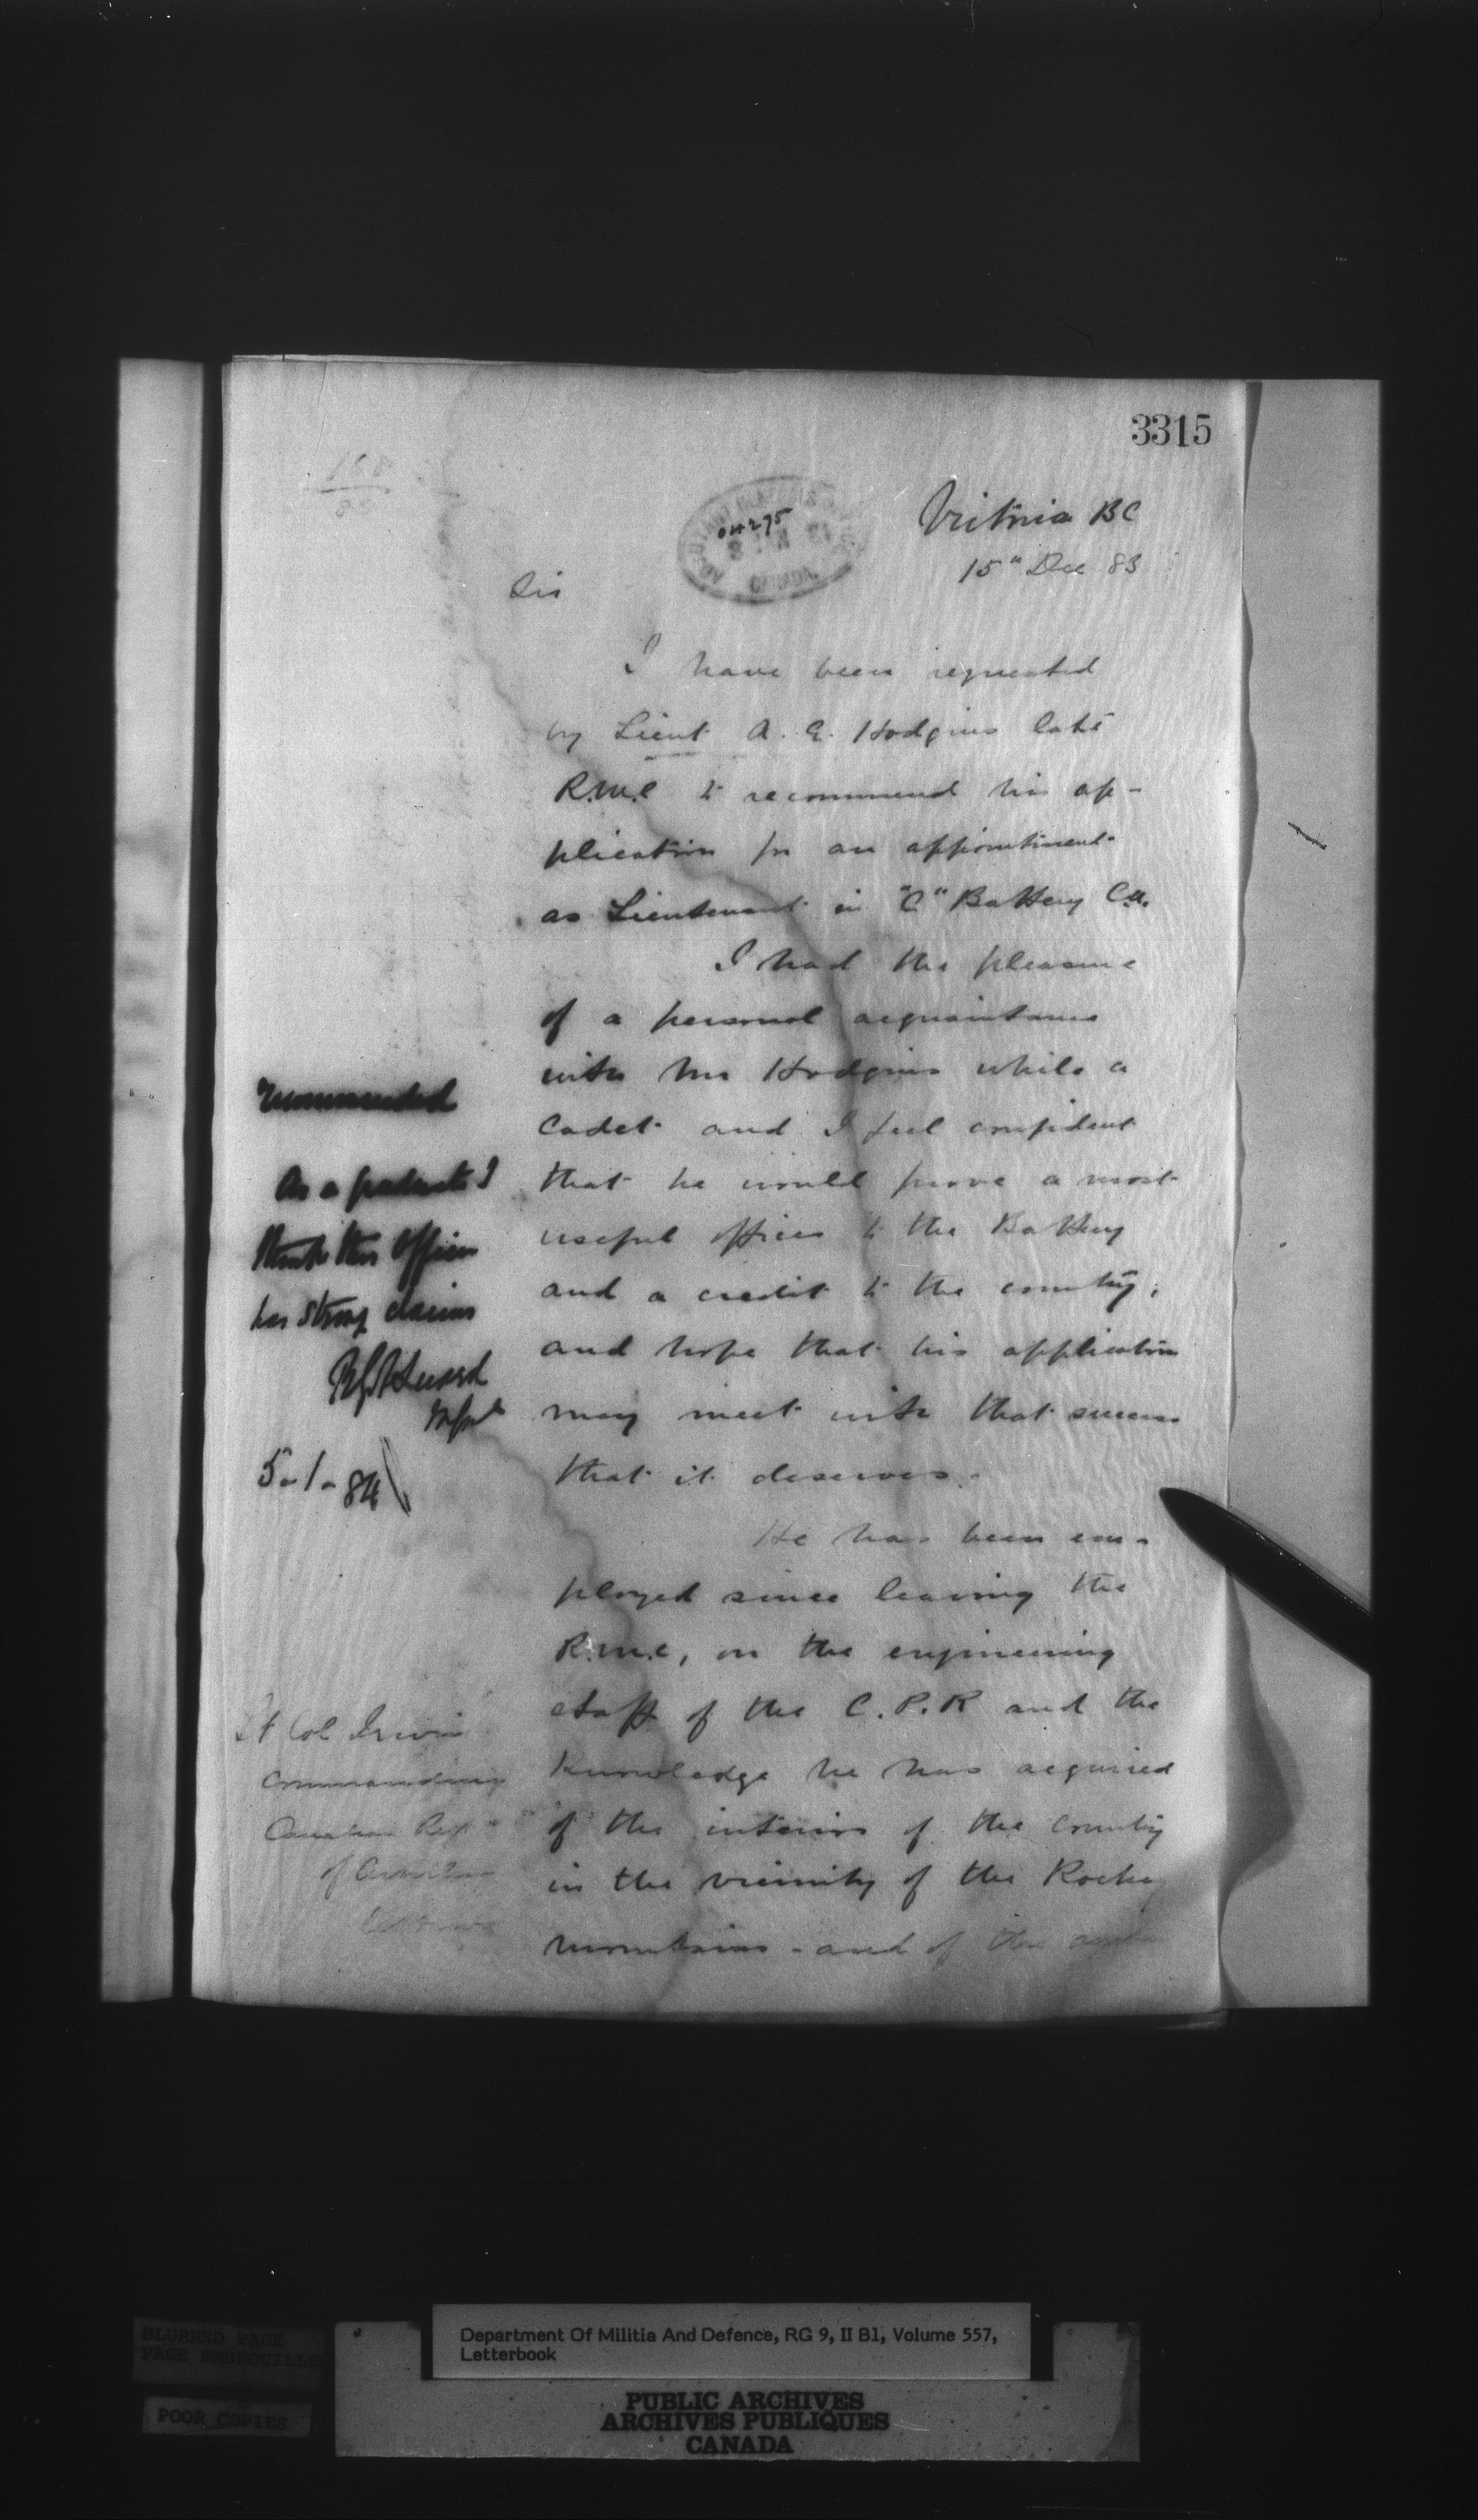 3315
04275
CANADA
Victoria BC
15" Dec 83
Sir
I have been requested
by Lieut A. E. Hodgins late
R.M.C to recommend his ap-
plication for an appointment
as Lieutenant in "C" Battery C.A.
I had the pleasure
of a personal acquaintance
with Mr Hodgins while a
Cadet and I feel confident
that he would prove a most
useful officer to the Battery
and a credit to the country,
and hope that his application
may meet with that success
that it deserves.
He has been em-
ployed since leaving the
R.M.C, on the engineering
staff of the C.P.R and the
knowledge he has acquired
of the interior of the country
in the vicinity of the Rocky
mountains - and of the
recommended
As a graduate I
think this Officer
has strong claims
5-1-84
Lt Col Irwin
Commanding
Canadian Regt
of Artillery
BLURRED PAGE
PAGE EMBROUILLEE
POOR COPIES
Department Of Militia And Defence, RG 9, II B1, Volume 557,
Letterbook
PUBLIC ARCHIVES
ARCHIVES PUBLIQUES
CANADA